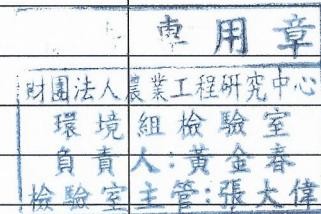 專用章
財團法人農業工程研究中心
環境組檢驗室
負責人:黃金春
檢驗室主管:張大偉